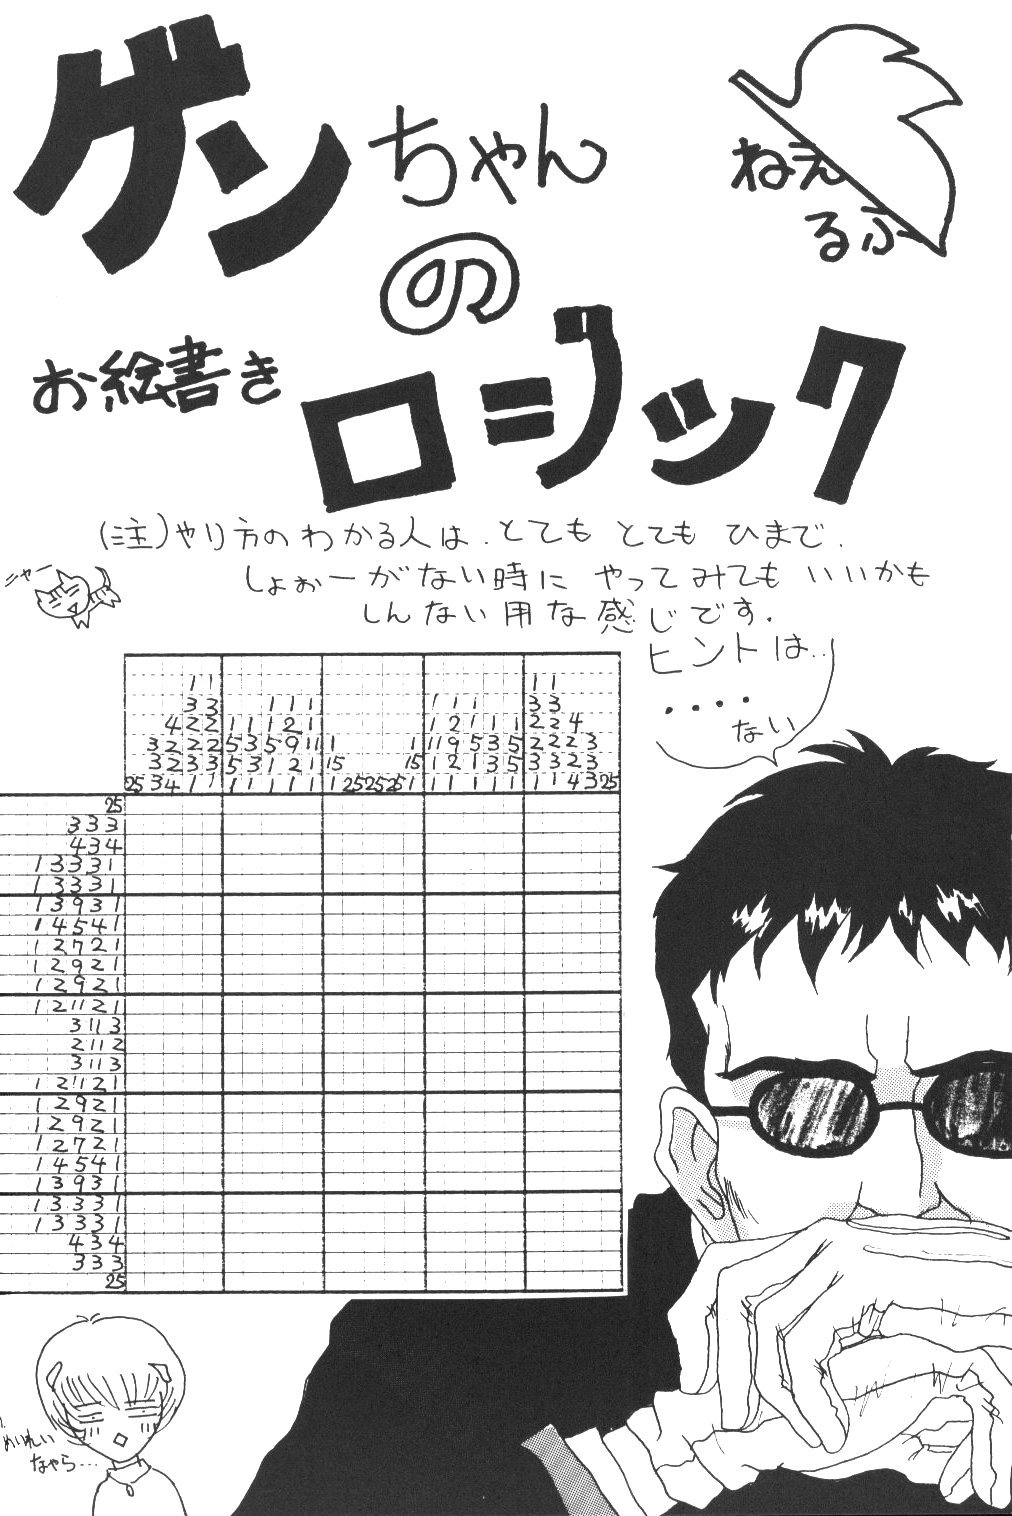 ゲンちゃん
の
お絵書き
ロジック
ねえ
るふ
(注)やり方のわかる人は.とても とても ひまで.
しょぉーがない時に やってみても いいかも
しんない用な感じです.
ニャー
ヒントは..
....
ない
1 1 1 1
3 3 1 1 1 1 1 1 3 3
4 2 2 1 1 1 2 1 1 2 1 1 2 2 4
3 2 2 2 5 3 5 9 11 1 1 11 9 5 3 5 2 2 2 3
3 2 3 3 5 3 1 2 1 15 15 1 2 1 3 5 3 3 2 3
25 3 4 1 1 1 1 1 1 1 1 25 25 25 1 1 1 1 1 1 1 1 4 3 25
25
3 3 3
4 3 4
1 3 3 3 1
1 3 3 3 1
1 3 9 3 1
1 4 5 4 1
1 2 7 2 1
1 2 9 2 1
1 2 9 2 1
1 2 11 2 1
3 11 3
2 11 2
3 11 3
1 2 11 2 1
1 2 9 2 1
1 2 9 2 1
1 2 7 2 1
1 4 5 4 1
1 3 9 3 1
1 3 3 3 1
1 3 3 3 1
4 3 4
3 3 3
25
めいれい
なゃら...